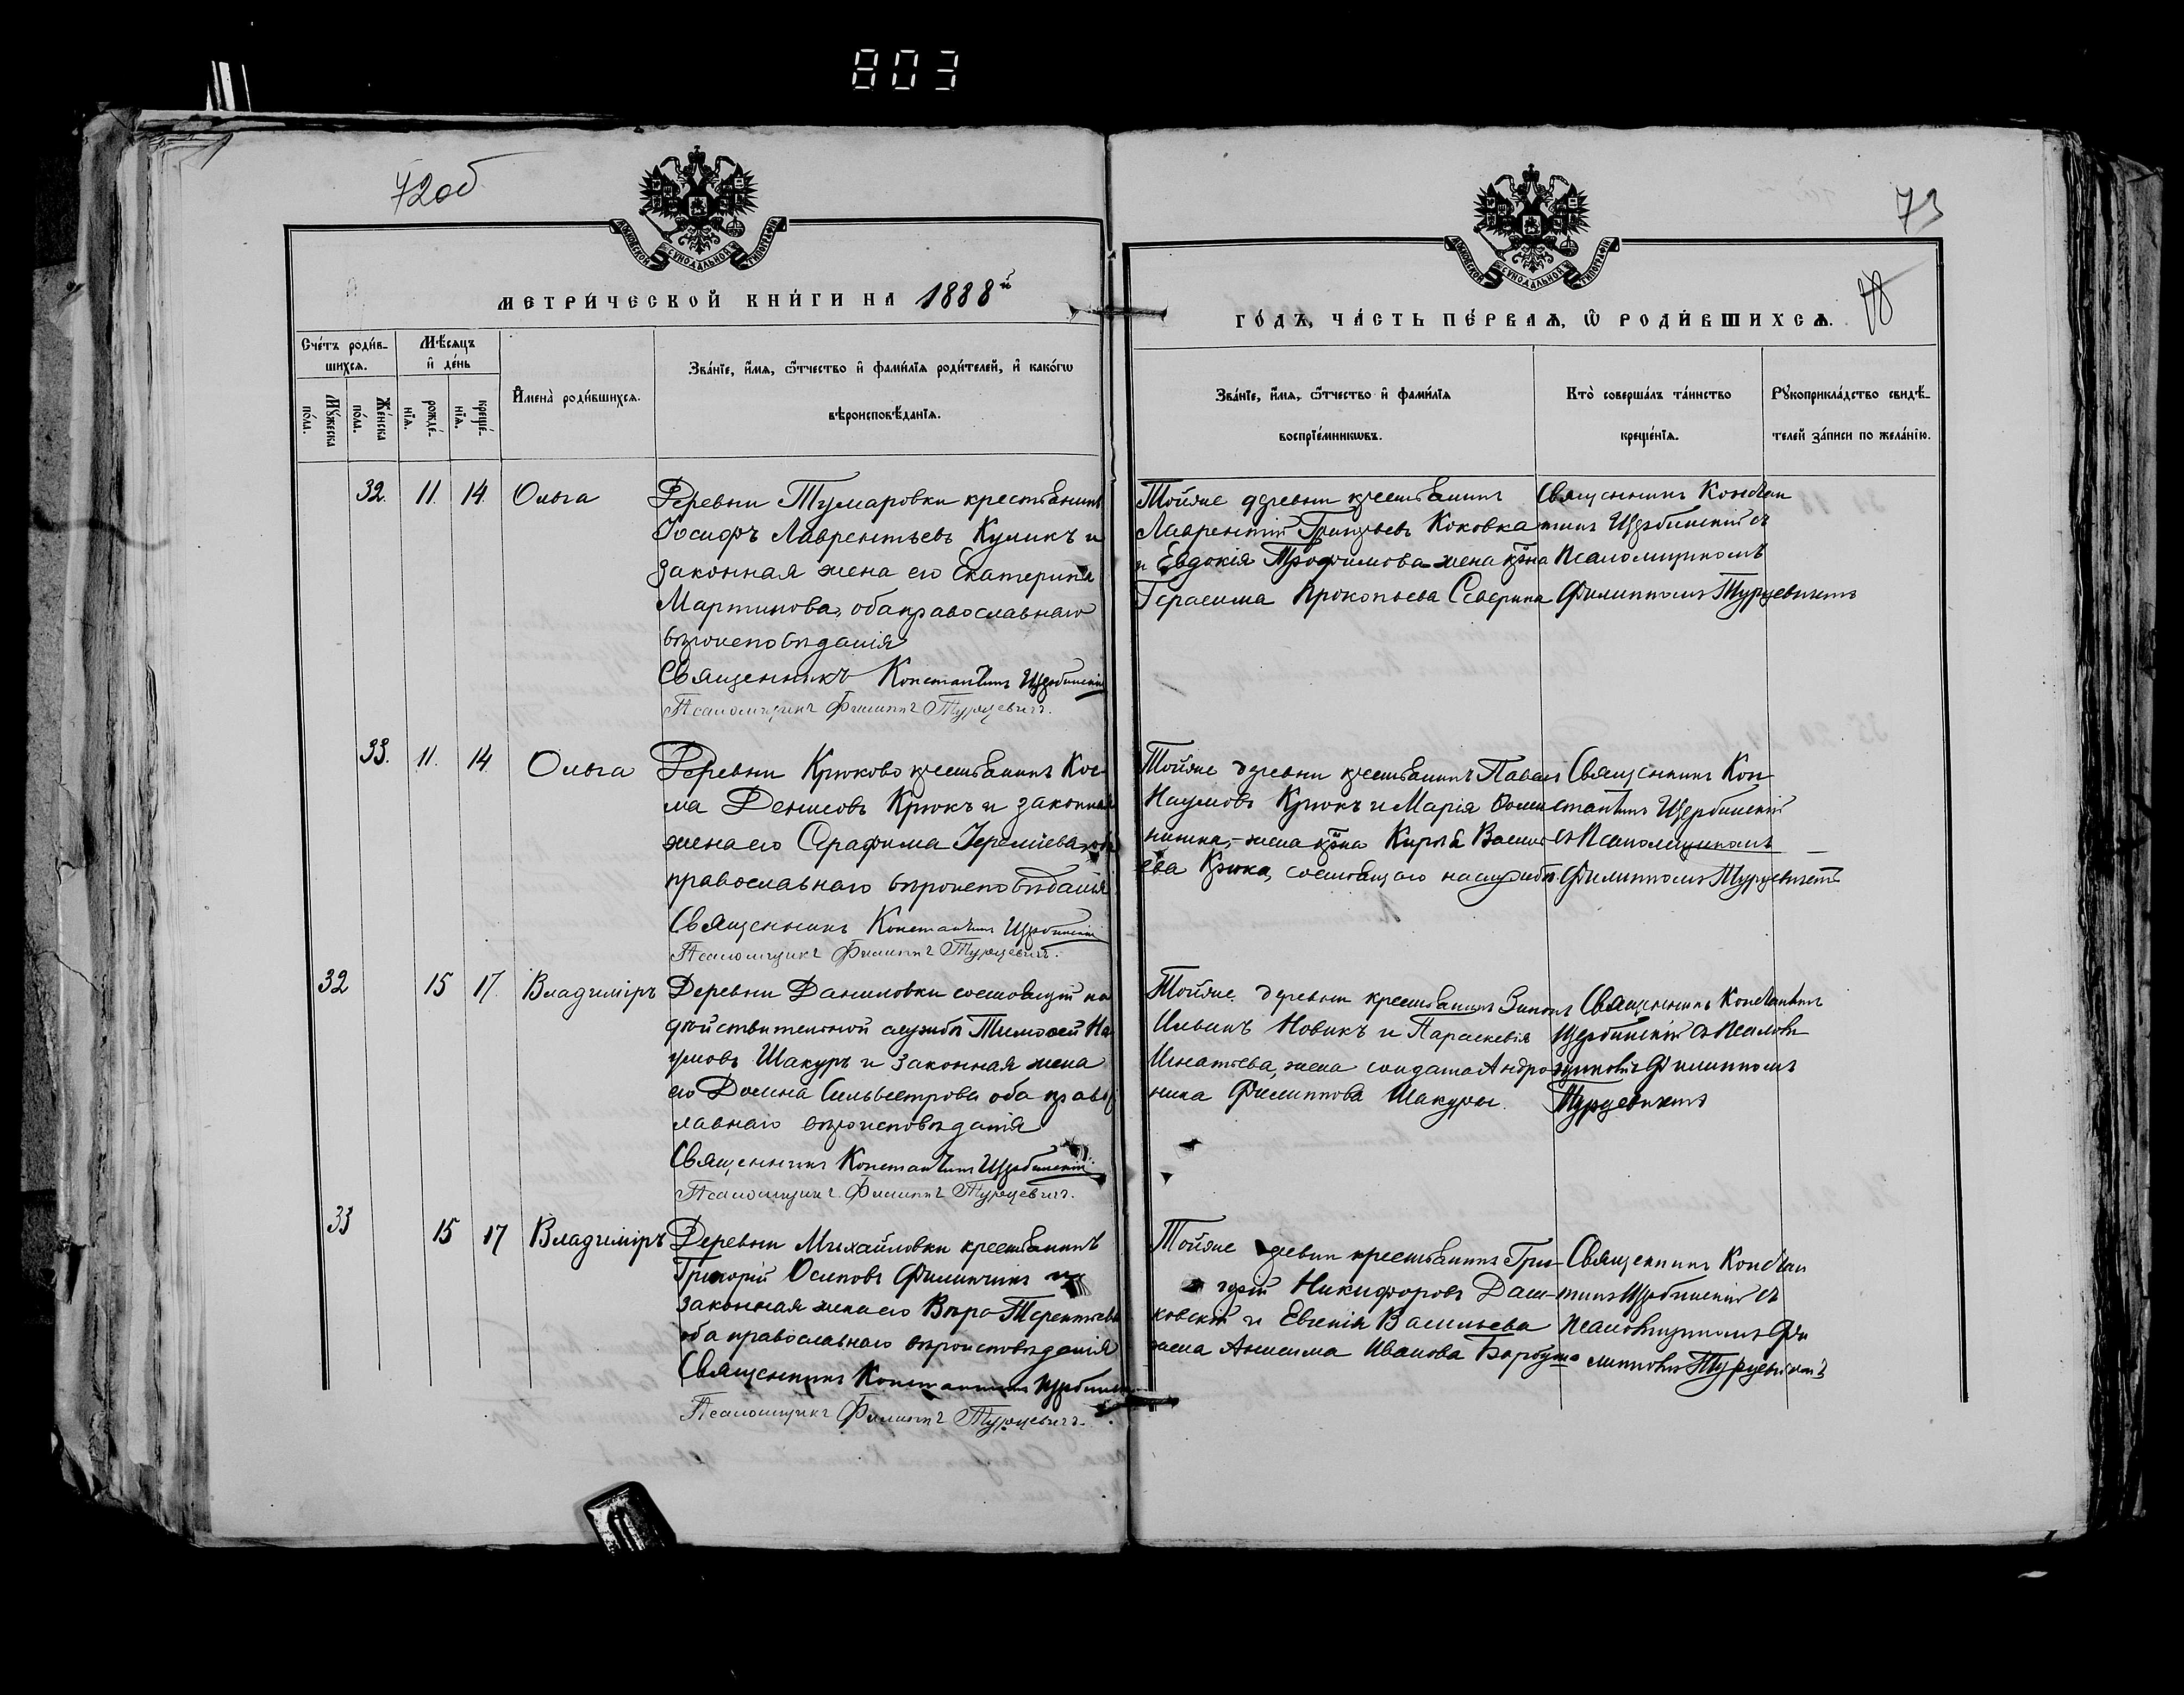 803
72об
МОСКОВСКОЙ СѴНОДАЛЬНОЙ ТИПОГРАФІИ
МЕТРИ́ЧЕСКОЙ КНИ́ГИ НА 1888й
Сче́тъ роди́вшихсѧ.
Мѹжеска по́ла.
Же́нска по́ла.
Мѣ́сѧцъ и҆ де́нь
рожде́нїѧ.
креще́нїѧ.
И҆мена̀ роди́вшихсѧ.
Зва́нїе, и҆́мѧ, ѻ҆́тчество и҆ фами́лїѧ роди́телей, и҆ како́гѡ
вѣроисповѣ́данїѧ.
32. 11. 14. Ольга
Деревни Тумаровки крестьянинъ
Іосифъ Лаврентьевъ Куликъ и
законная жена его Екатерина
Мартинова, оба православнаго
вѣроисповѣданія
Священникъ Константинъ Щербинскій
Псаломщикъ Филиппъ Турцевичъ.
33. 11. 14 Ольга
Деревни Крюково крестьянинъ Кос-
ма Денисовъ Крюкъ и законная
жена его Серафима Іереміева, оба
православнаго вѣроисповѣданія
Священникъ Константинъ Щербинскій
Псаломщикъ Филиппъ Турцевичъ.
32 15 17. Владиміръ
Деревни Даниловки состоящій на
дѣйствительной службѣ Тимоѳей На-
умовъ Шакуръ и законная жена
его Домна Сильвестрова оба право
лавнаго вѣроисповѣданія
Священникъ Константинъ Щербинскій
Псаломщикъ Филиппъ Турцевичъ.
33 15 17 Владиміръ
Деревни Михайловки крестьянинъ
Григорій Осиповъ Филипчикъ и
законная жена его Вѣра Терентьева
оба православнаго вѣроисповѣданія
Священникъ Константинъ Щербинскій
Псаломщикъ Филиппъ Турцевичъ.
73
МОСКОВСКОЙ СѴНОДАЛЬНОЙ ТИПОГРАФІИ
ГО́ДЪ, ЧА́СТЬ ПЕ́РВАѦ, Ѡ҆ РОДИ́ВШИХСѦ.
Зва́нїе, и҆́мѧ, ѻ҆́тчество и҆ фами́лїѧ
воспрїе́мникѡвъ.
Кто̀ соверша́лъ та́инство
креще́нїѧ.
Рѹкоприкла́дство свидѣ́-
телей за́писи по жела́нїю.
Тойже деревни крестьянинъ
Лаврентій Григорьевъ Коковка
и Евдокія Трофимова жена кр-на
Герасима Прокопьева Северина
Священникъ Констан
тинъ Щербинскій съ
Псаломщикомъ
Филиппомъ Турцевичемъ
Тойже деревни крестьянинъ Павелъ
Наумовъ Крюкъ и Марія Ѳоми
нична, жена кр-на Кирила Василь
ева Крюка, состоящаго на службѣ.
Священникъ Кон
стантинъ Щербинскій
съ Псаломщикомъ
Филиппомъ Турцевичемъ
Тойже деревни крестьянинъ Зинонъ
Ильинъ Новикъ и Параскевія
Игнатьева, жена солдата Андро
ника Филиппова Шакуры.
Священникъ Константинъ
Щербинскій съ Псалом
щикомъ Филиппомъ
Турцевичемъ
Тойже деревни крестьянинъ Гри-
горій Никифоровъ Даш-
ковскій и Евгенія Васильева
жена Анисима Иванова
Священникъ Констан
тинъ Щербинскій съ
псаломщикомъ Фи
липпомъ Турцевичемъ